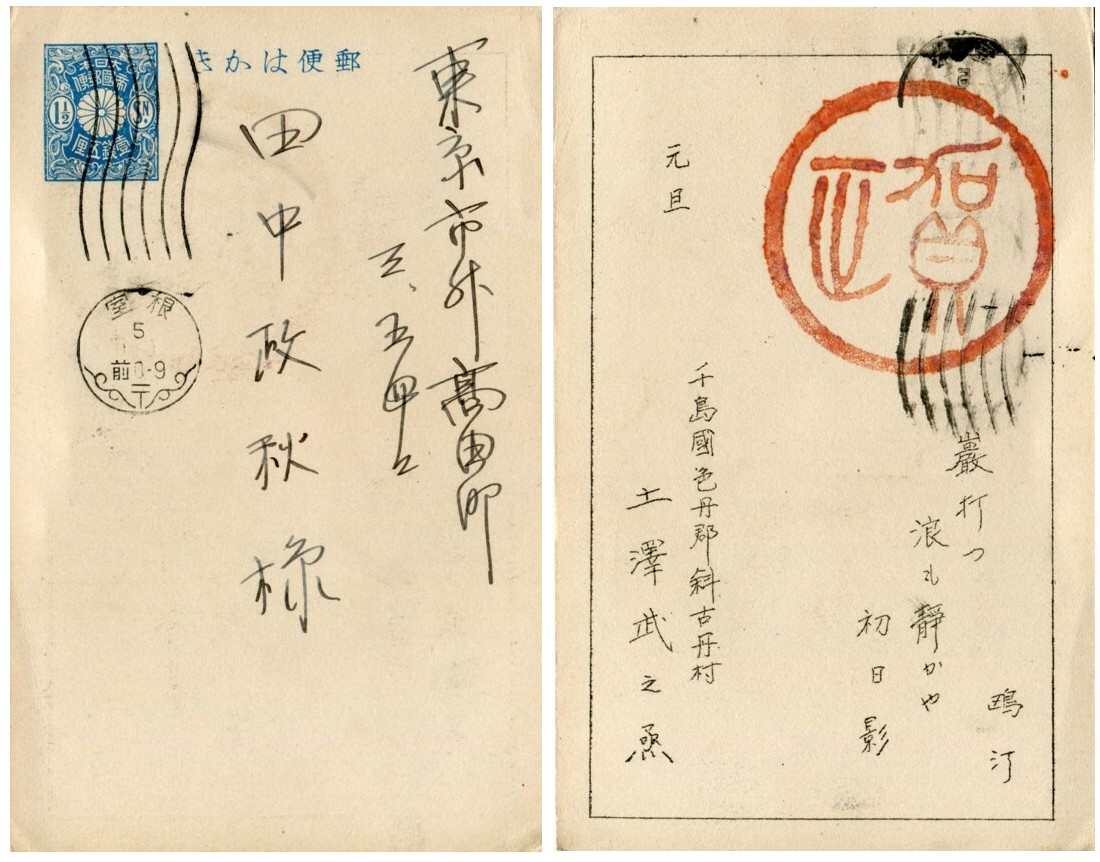 郵便はかき
大日本
帝國郵便
1½ Sn.
壹錢五厘
東京市外高田町
三、五四二
田中政秋様
根室
5
前0-9
賀正
巖打つ
浪も静かや
初日影
鴎汀
元旦
千島國色丹郡斜古丹村
土澤武之烝